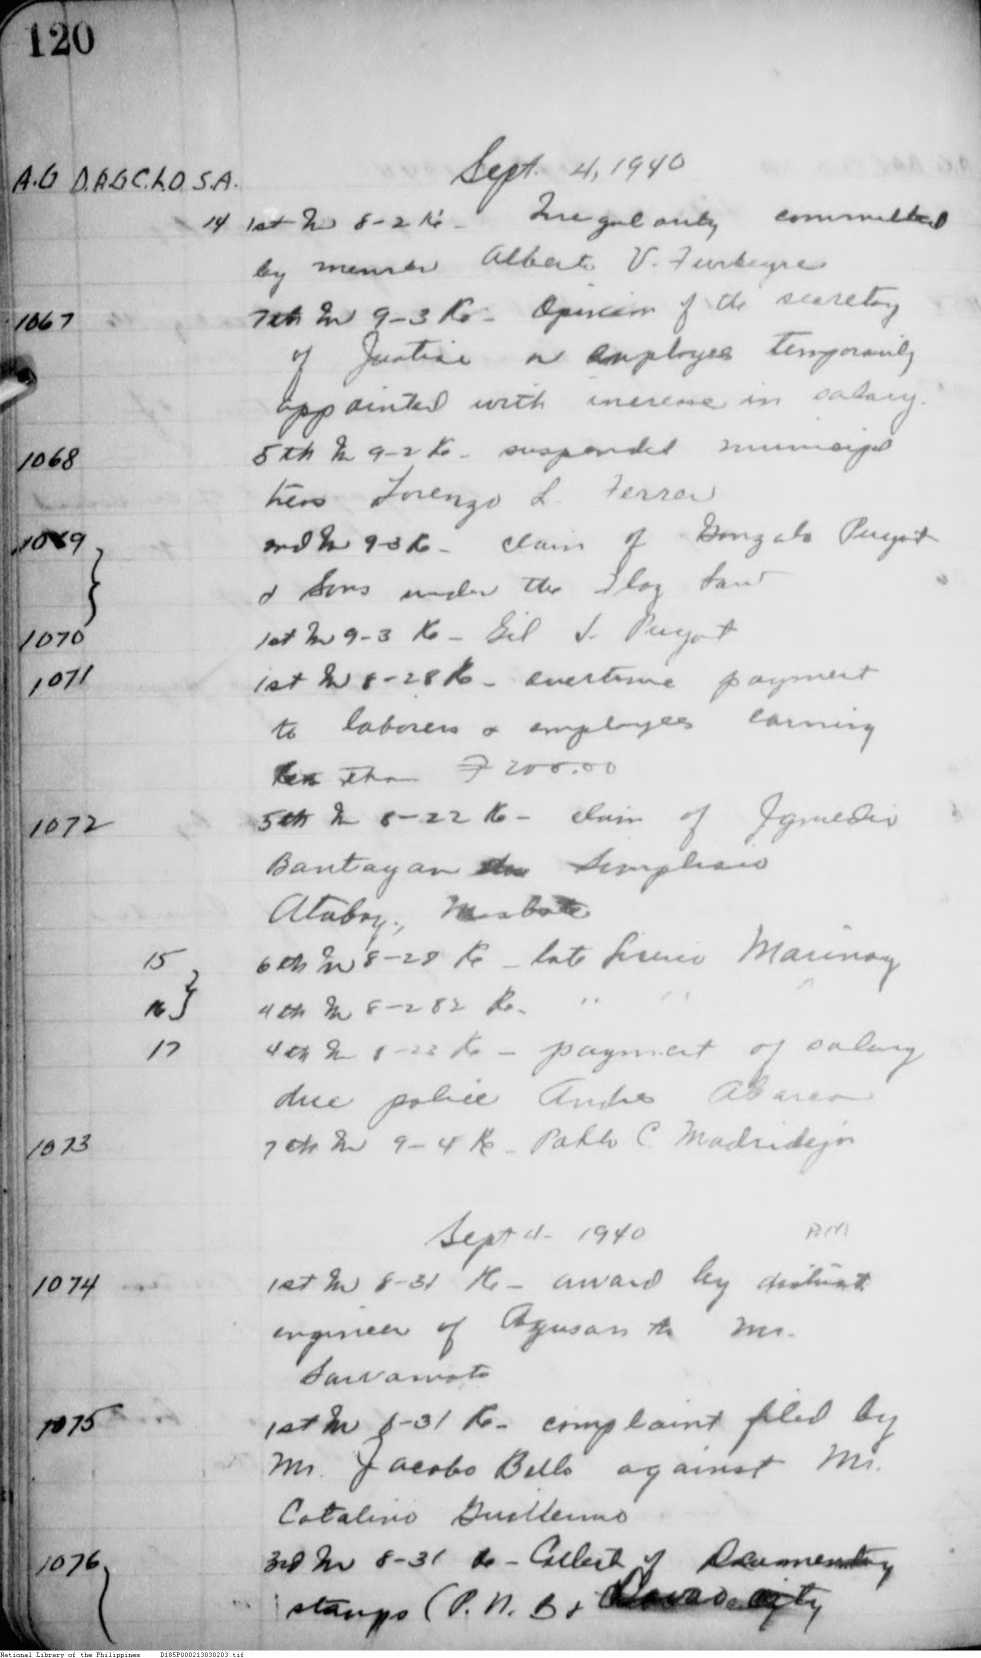 120
Sept. 4, 1940
A.G D.AGC.L.O S.A.
14 1st In 8-2 Ke - Irregularity committed
by Alberto V.
1067 7th In 9-3 Ke - Opinion of the secretary
of Justice on employees temporarily
appointed with increase in salary.
1068 5th In 9-2 Ke - suspended municipal
treas Lorenzo L. Ferrer
1069 2nd In 9-3 Ke - claim of Gonzalo Puyat
& Sons under the Flag Law
1070 1st In 9-3 Ke - Gil J. Puyat
1071 1st In 8-28 Ke - overtime payment
to laborers & employees earning
less than ₱200.00
1072 5th In 8-22 Ke - claim of
Bantayan Simplicio
Atabay, Masbate
15 6th In 8-28 Ke - late Marinay
16 4th In 8-282 Ke. " " "
17 4th In 8-22 Ke - payment of salary
due police Andres
1073 7th In 9-4 Ke - Pablo C. Madridejos
Sept 4 - 1940 P.M.
1074 1st In 8-31 Ke - award by district
engineer of Agusan to Mr.
Sawamoto
1075 1st In 8-31 Ke - complaint filed by
Mr. Jacobo Bello against Mr.
Catalino Guillermo
1076 3rd In 8-31 Ke - Collect of Documentary
stamps (P.N.B & Davao City
National Library of the Philippines D185P000213030203.tif